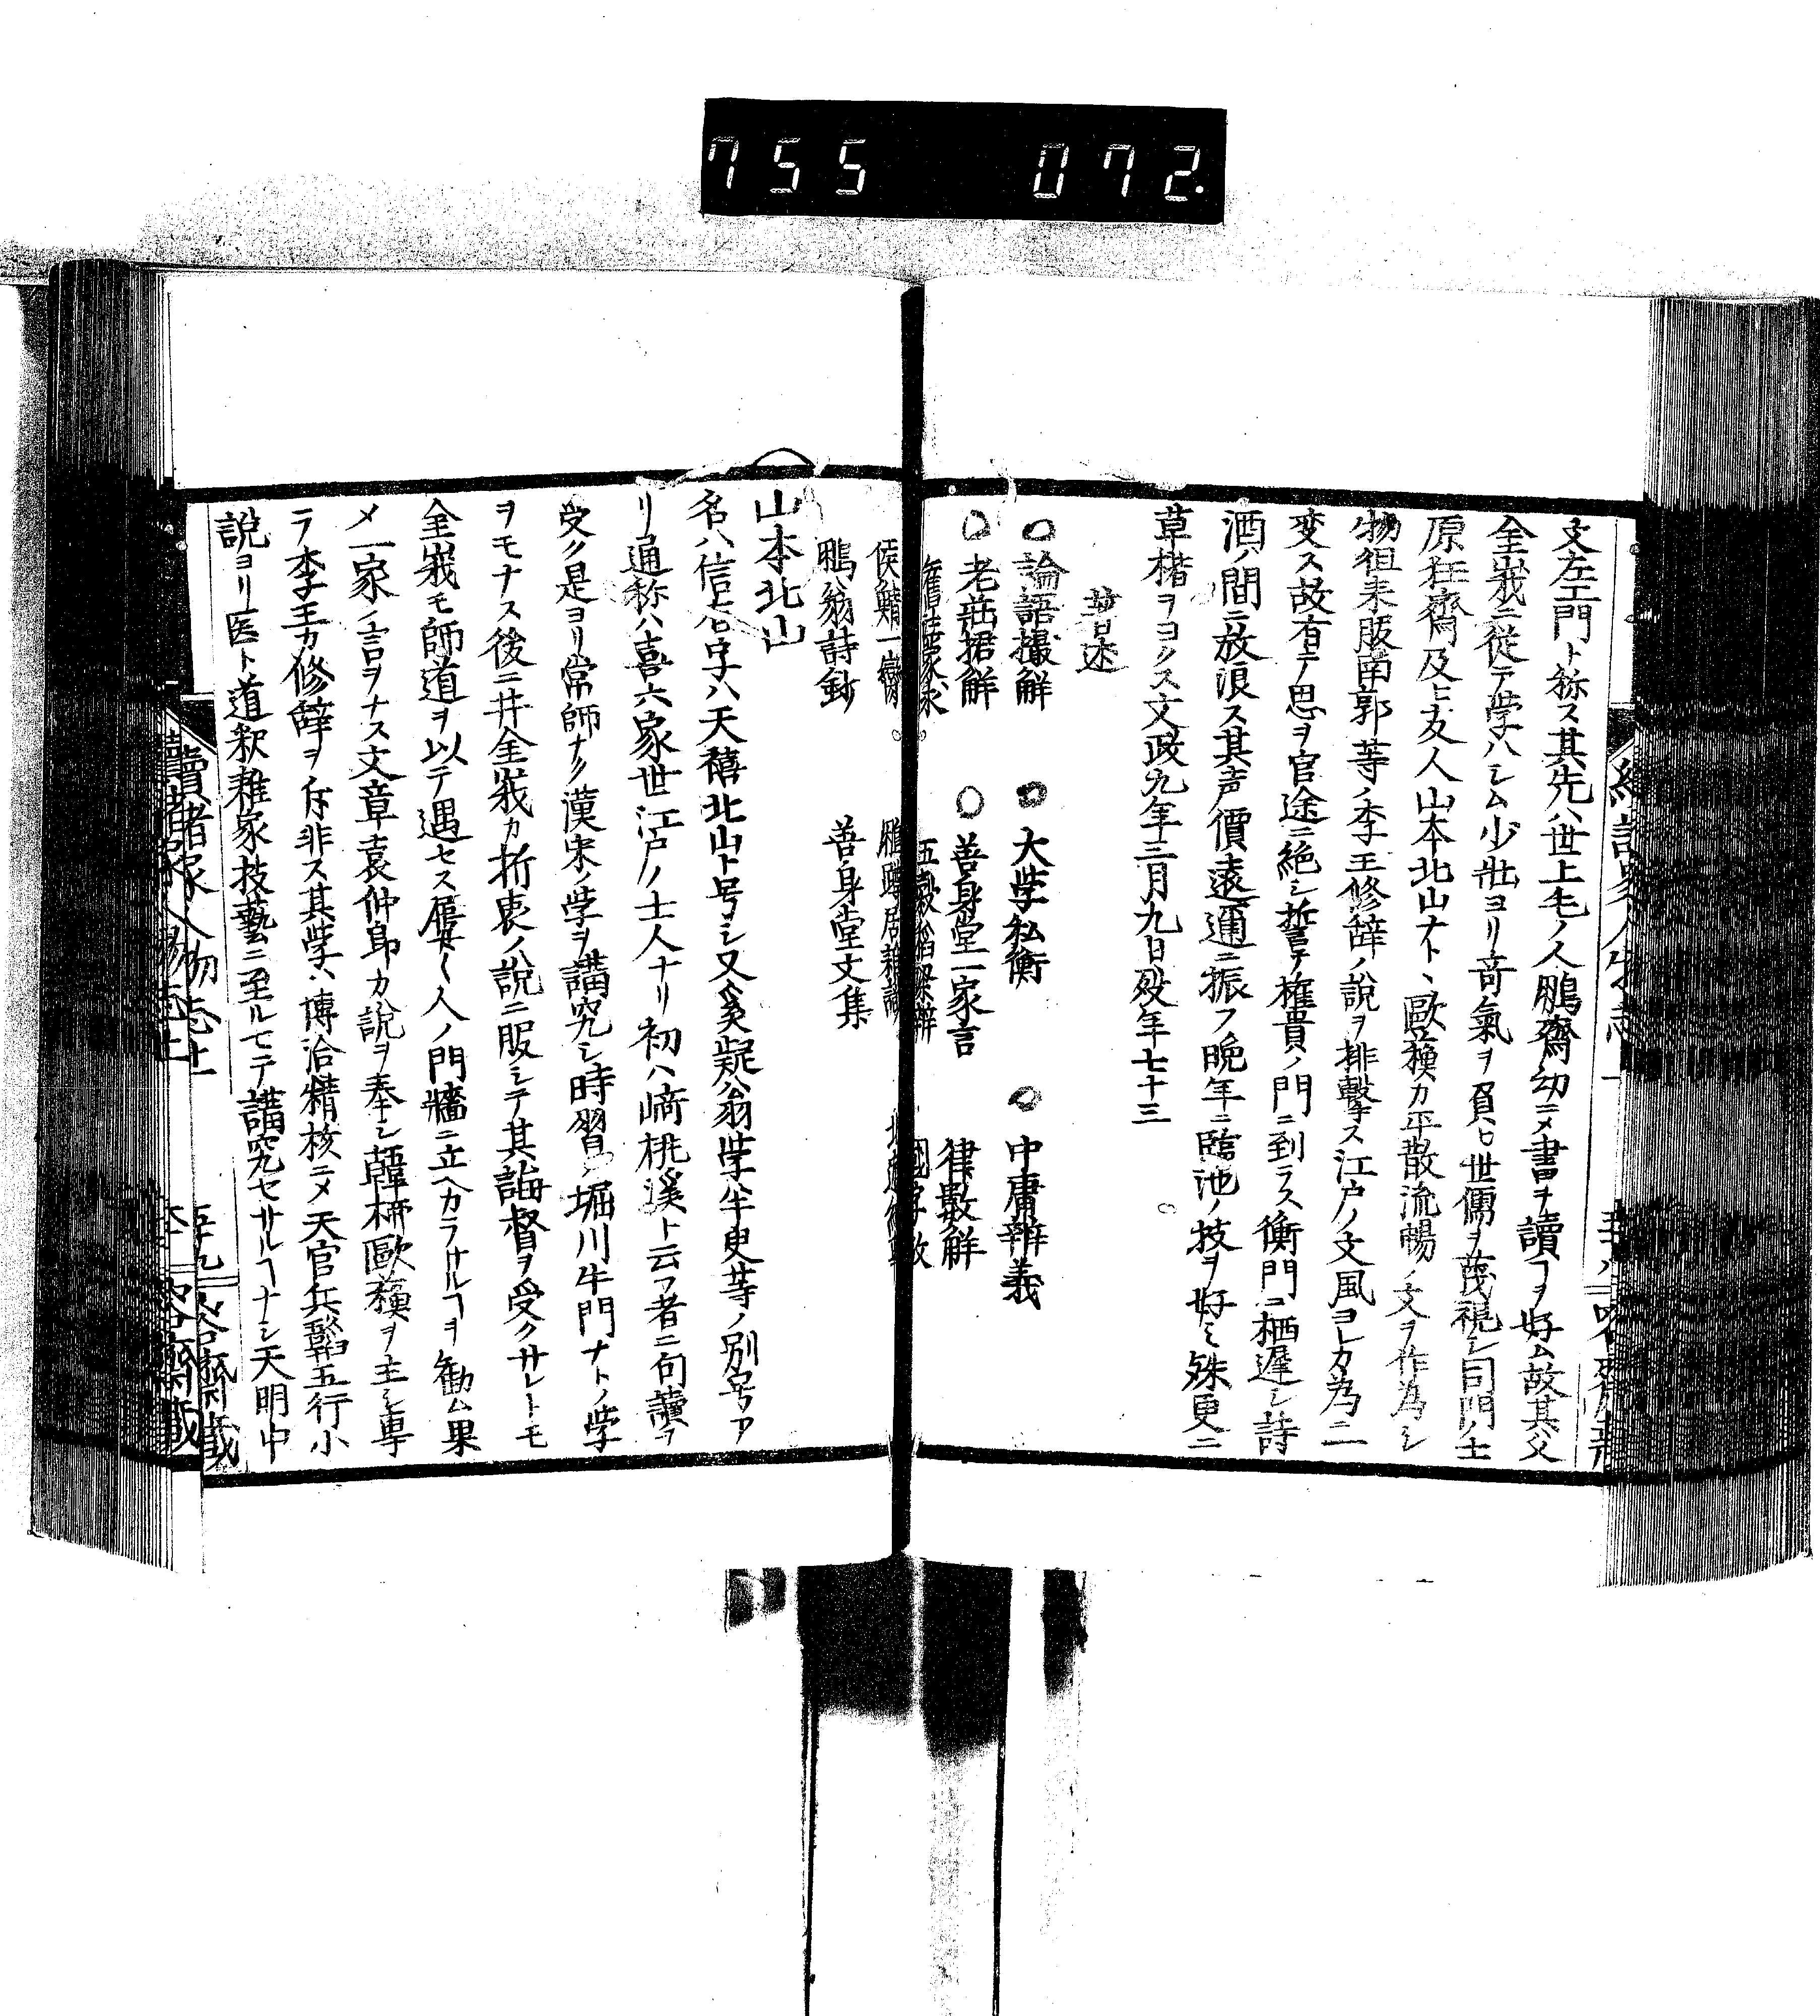 755 072.
文左エ門ト称ス其先ハ世上毛ノ人鵬齋幼ニメ書ヲ讀ヿヲ好ム故其父
全峩ニ從テ学ハシム少壯ヨリ竒氣ヲ負ヒ世儒ヲ蔑視シ同門ノ士
原狂齋及ヒ友人山本北山ナト丶歐蘓カ平散流暢ノ文ヲ作為シ
物徂耒服南郭等ノ李王修辞ノ說ヲ排擊ス江户ノ文風ヨレカ為ニ一
変ス故有テ思ヲ官途ニ絶シ誓テ權貴ノ門ニ到ラス衡門ニ栖遲シ詩
酒ノ間ニ放浪ス其声價遠邇ニ振フ晩年ニ臨池ノ技ヲ好ミ殊更ニ
草楷ヲヨクス文政九年三月九日殁年七十三
著述
○論語撮解 ○大学私衡 ○中庸辨義
○老莊捃解 ○善身堂一家言 律數解
侯鯖一臠
鵬翁詩鈔 善身堂文集
山本北山
名ハ信有字ハ天禧北山ト号シ又奚疑翁学半吏等ノ別号ア
リ通称ハ喜六家世江户ノ士人ナリ初ハ﨑桃溪ト云フ者ニ句讀ヲ
受ク是ヨリ常師ナク漢宋ノ学ヲ講究シ時習堀川牛門ナトノ学
ヲモナス後ニ井全峩カ折衷ノ說ニ服シテ其誨督ヲ受クサレトモ
全峩モ師道ヲ以テ遇セス屢〱人ノ門牆ニ立ヘカラサルヿヲ勸ム果
メ一家ノ言ヲナス文章袁仲郎カ說ヲ奉シ韓柳歐蘓ヲ主シ專
ラ李王カ修辞ヲ斥非ス其学ハ博洽精核ニメ天官兵鬎五行小
說ヨリ医ト道釈雜家技藝ニ至ルモテ講究セサルヿナシ天明中
續諸家人物志上 五九 㕮齋蔵